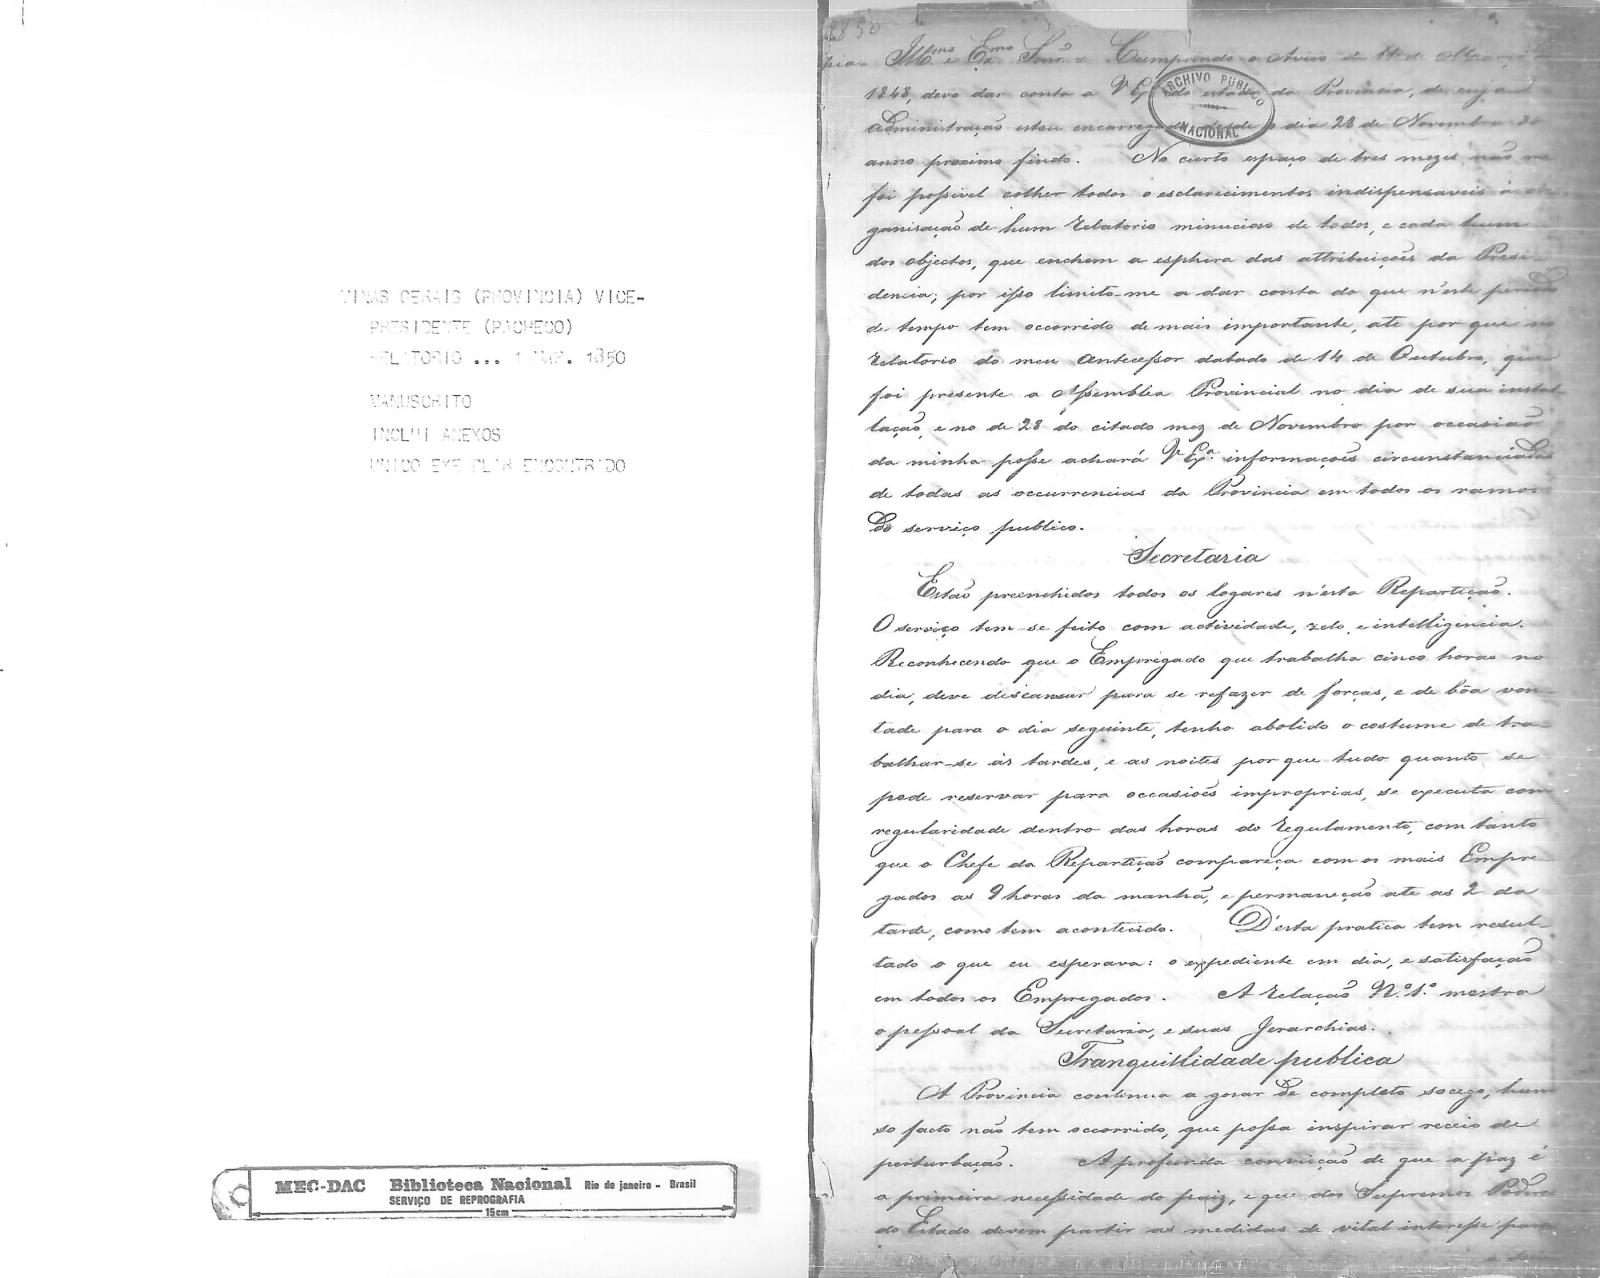 MINAS GERAIS (PROVINCIA) VICE-
PRESIDENTE (PACHECO)
RELATORIO ... 1 MAR. 1850
MANUSCRITO
INCLUI ANEXOS
UNICO EXEMPLAR ENCONTRADO
MEC-DAC Biblioteca Nacional Rio de janeiro - Brasil
SERVIÇO DE REPROGRAFIA
15cm
1850
pia = Illmo. e Exmo. Senr. = Cumprindo o Aviso de 11 de Março de
ARCHIVO PUBLICO
NACIONAL
1848, devo dar conta a V Exa. do estado da Provincia, de cuja
administração estou encarregado desde o dia 28 de Novembro do
anno proximo findo. No curto espaço de tres mezes não me
foi possivel colher todos o esclarecimentos indispensaveis à or-
ganisação de hum Relatorio minucioso de todos, e cada hum
dos objectos, que enchem a esphera das attribuições da Presi-
dencia; por isso limito-me a dar conta do que n'este periodo
de tempo tem occorrido de mais importante, até por que no
Relatorio do meu Antecessor datado de 14 de Outubro, que
foi presente a Assemblea Provincial no dia de sua instal-
lação, e no de 28 do citado mez de Novembro por occasião
da minha posse achará V Exa. informações circunstanciadas
de todas as occurrencias da Provincia em todos os ramos
do serviço publico.
Secretaria
Estão preenchidos todos os logares n'esta Repartição.
O serviço tem-se feito com actividade, zelo, e intelligencia.
Reconhecendo que o Empregado que trabalha cinco horas no
dia, deve descansar para se refazer de forças, e de bôa von-
tade para o dia seguinte, tenho abolido o costume de tra-
balhar-se ás tardes, e as noites por que tudo quanto se
pode reservar para occasiões improprias, se executa com
regularidade dentro das horas do Regulamento, com tanto
que o Chefe da Repartição compareça com os mais Empre-
gados as 9 horas da manhã, e permaneção até as 2 da
tarde, como tem acontecido. D'esta pratica tem resul-
tado o que eu esperava: o expediente em dia, e satisfação
em todos os Empregados. A Relação N.º 1.º mostra
o pessoal da Secretaria, e suas Jerarchias.
Tranquillidade publica
A Provincia continua a gosar de completo socego, hum
so facto não tem occorrido, que possa inspirar receio de
perturbação. A profunda convicção de que a paz é
a primeira necessidade do paiz, e que dos Supremos Poderes
do Estado devem partir as medidas de vital interesse para